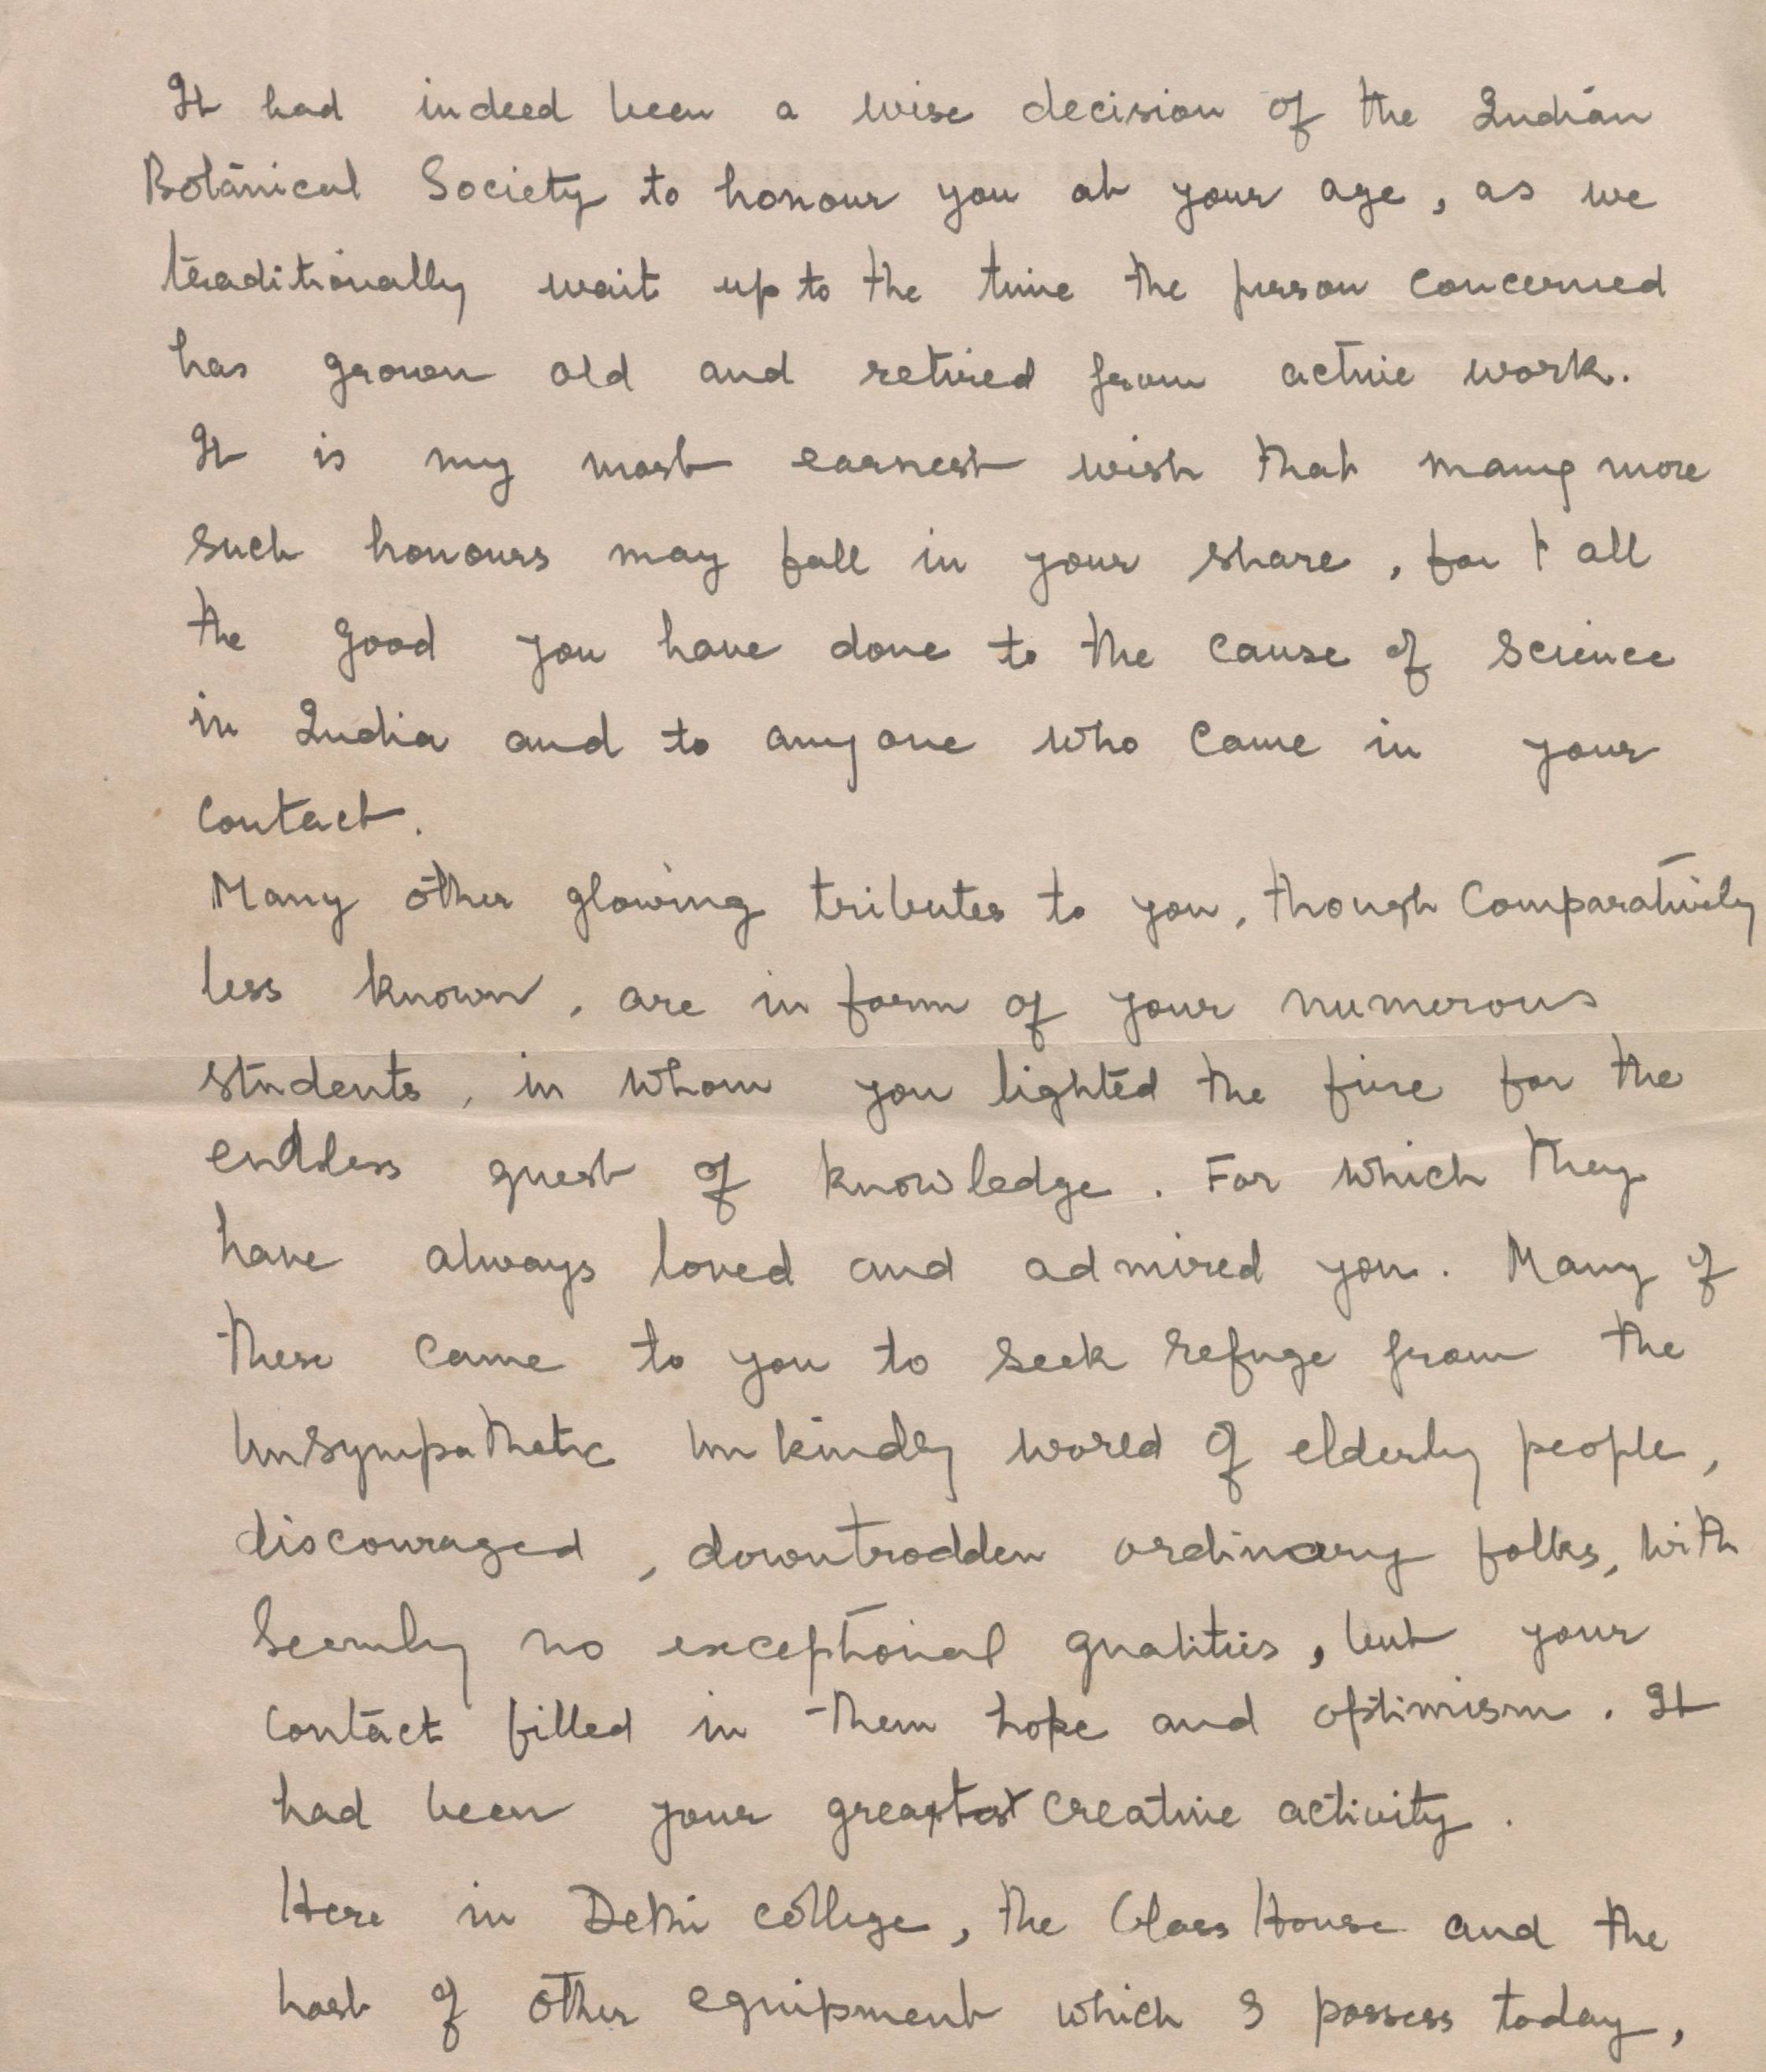 It had indeed been a wise decision of the Indian
Botanical Society to honour you at your age, as we
traditionally wait up to the time the person concerned
has grown old and retired from active work.
It is my most earnest wish that many more
such honours may fall in your share, for all
the good you have done to the cause of science
in India and to anyone who came in your
contact.
Many other glowing tributes to you, though comparatively
less known, are in form of your numerous
students, in whom you lighted the fire for the
endless quest of knowledge. For which they
have always loved and admired you. Many of
these came to you to seek refuge from the
unsympathetic unkindly world of elderly people,
discouraged, downtrodden ordinary folks, with
seemly no exceptional qualities, but your
contact filled in them hope and optimism. It
had been your greatest creative activity.
Here in Delhi college, the Glass House and the
host of other equipment which I possess today,